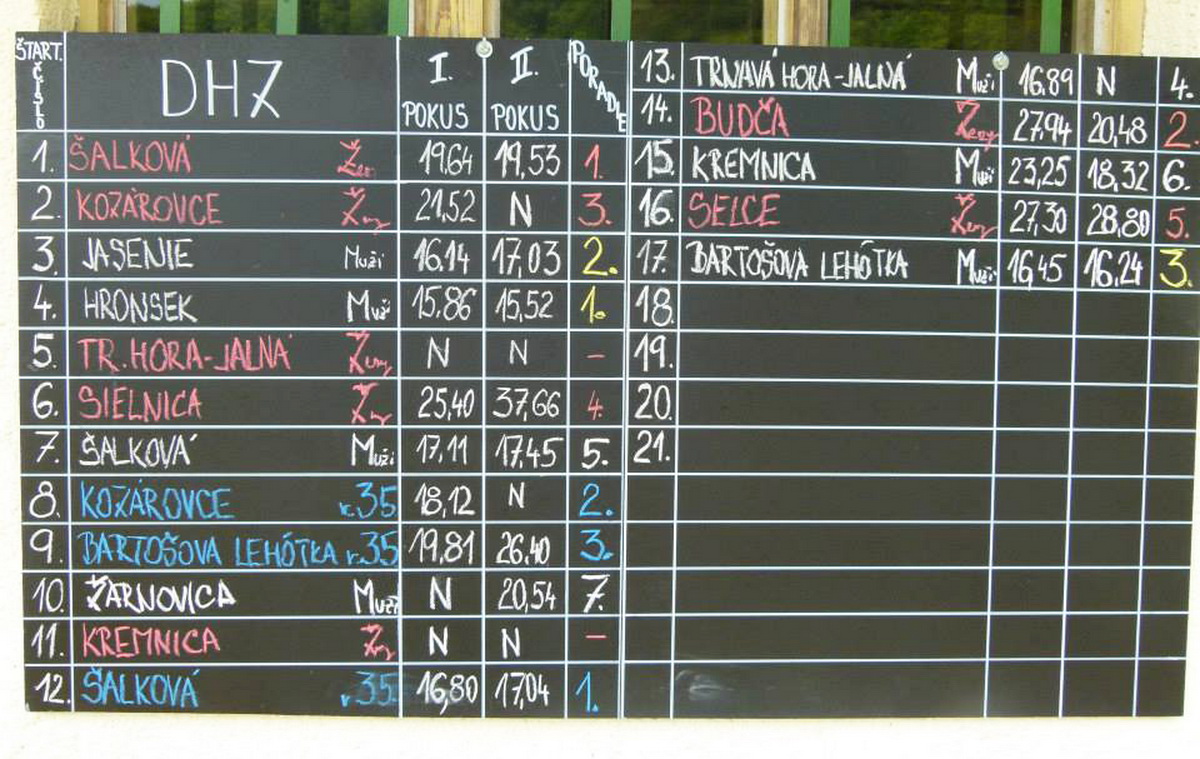 ŠTART. ČÍSLO DHZ I. POKUS II. POKUS PORADIE
1. ŠALKOVÁ Ženy 19,64 19,53 1.
2. KOZÁROVCE Ženy 21,52 N 3.
3. JASENIE Muži 16.14 17,03 2.
4. HRONSEK Muži 15.86 15,52 1.
5. TR. HORA-JALNÁ Ženy N N –
6. SIELNICA Ženy 25,40 37,66 4.
7. ŠALKOVÁ Muži 17,11 17,45 5.
8. KOZÁROVCE r.35 18,12 N 2.
9. BARTOŠOVA LEHÔTKA r.35 19,81 26.40 3.
10. ŽARNOVICA Muži N 20,54 7.
11. KREMNICA Ženy N N –
12. ŠALKOVÁ r.35 16,80 17,04 1.
13. TRNAVÁ HORA-JALNÁ Muži 16.89 N 4.
14. BUDČA Ženy 27,94 20,48 2.
15. KREMNICA Muži 23,25 18,32 6.
16. SELCE Ženy 27,30 28,80 5.
17. BARTOŠOVA LEHÔTKA Muži 16,45 16.24 3.
18.
19.
20.
21.